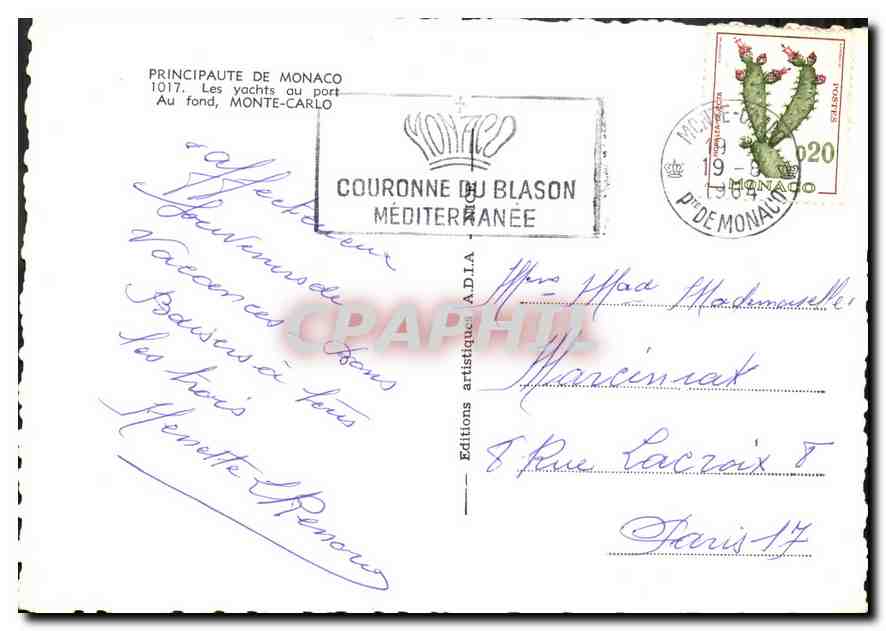 PRINCIPAUTE DE MONACO
1017. Les yachts au port
Au fond, MONTE-CARLO
MONACO
COURONNE DU BLASON
MÉDITERRANÉE
MONTE-C
19 -8
1964
Pté DE MONACO
POSTES
0,20
MONACO
affectueux
Souvenirs de
Vacances Bons
Baisers à tous
les trois
Henriette
Editions artistiques A.D.I.A - NICE
CPAPHIL
Mrs Mad Mademoiselle
Marciniak
8 Rue Lacroix 8
Paris 17